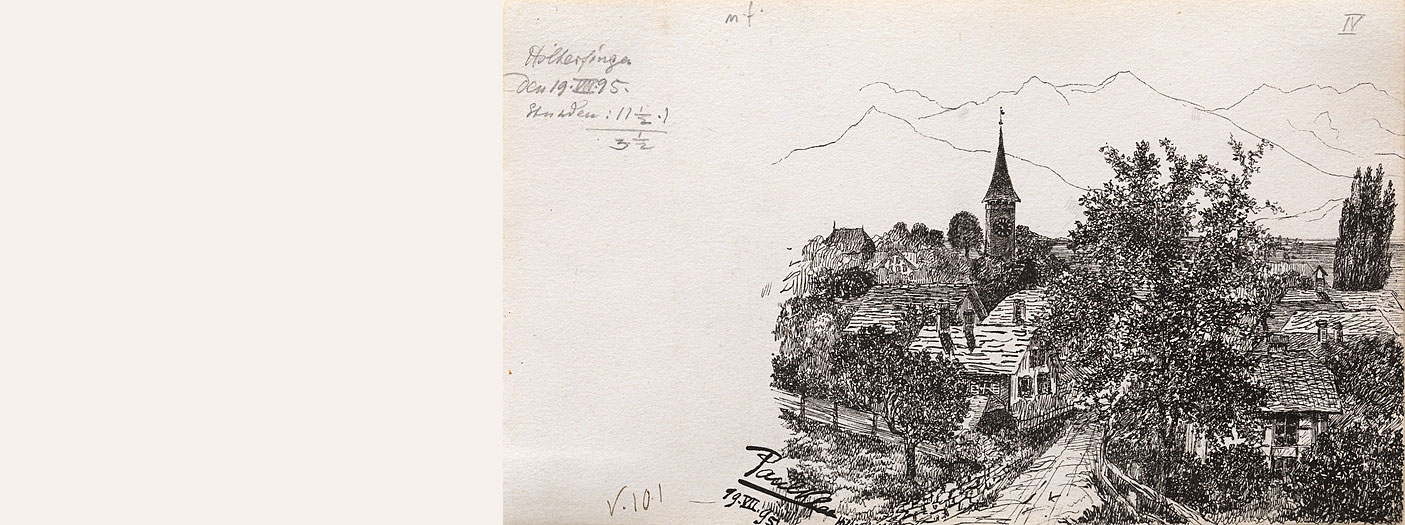 m f.
IV
Hilterfingen
den 19.VII.95.
Stunden: 11½.)
3½
Paul Klee
19.VII.95
V.101